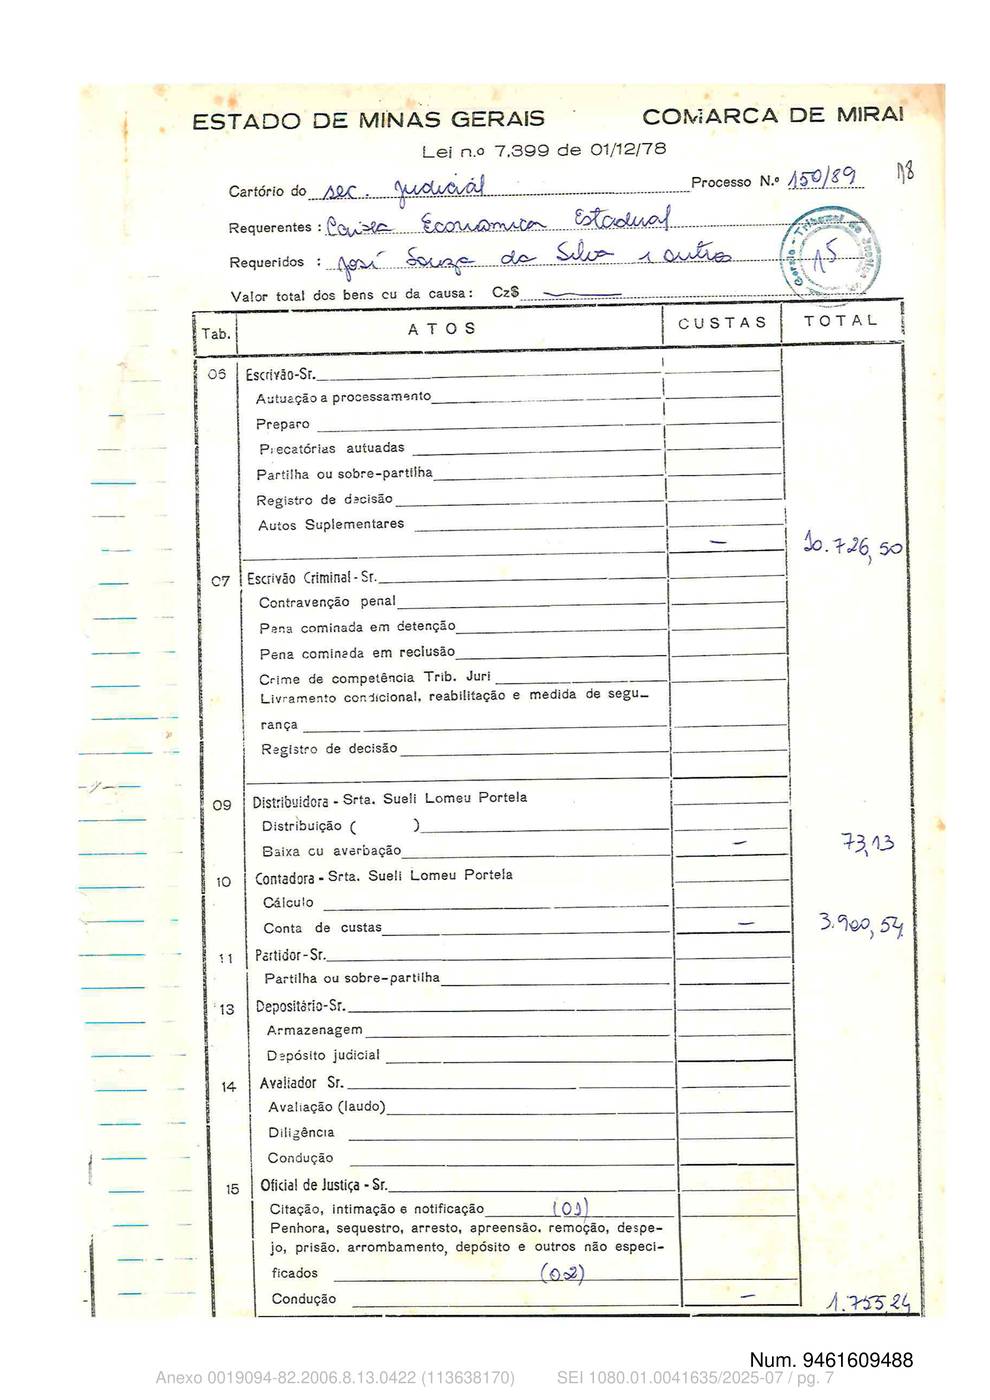 ESTADO DE MINAS GERAIS COMARCA DE MIRAI
Lei n.o 7.399 de 01/12/78
Cartório do sec. judicial Processo N.o 150/89 18
Requerentes : Caixa Economica Estadual
Requeridos : José Souza da Silva e outros
Tribunal de Justiça
15
Valor total dos bens cu da causa: Cz$
Tab. ATOS CUSTAS TOTAL
06 Escrivão-Sr.
Autuação a processamento
Preparo
Precatórias autuadas
Partilha ou sobre-partilha
Registro de decisão
Autos Suplementares
— 10.726,50
07 Escrivão Criminal - Sr.
Contravenção penal
Pena cominada em detenção
Pena cominada em reclusão
Crime de competência Trib. Juri
Livramento condicional, reabilitação e medida de segu-
rança
Registro de decisão
09 Distribuidora - Srta. Sueli Lomeu Portela
Distribuição ( )
Baixa cu averbação — 73,13
10 Contadora - Srta. Sueli Lomeu Portela
Cálculo
Conta de custas — 3.900,54
11 Partidor-Sr.
Partilha ou sobre-partilha
13 Depositário-Sr.
Armazenagem
Depósito judicial
14 Avaliador Sr.
Avaliação (laudo)
Diligência
Condução
15 Oficial de Justiça - Sr.
Citação, intimação e notificação (01)
Penhora, sequestro, arresto, apreensão, remoção, despe-
jo, prisão, arrombamento, depósito e outros não especi-
ficados (02)
Condução — 1.755,24
Num. 9461609488
Anexo 0019094-82.2006.8.13.0422 (113638170) SEI 1080.01.0041635/2025-07 / pg. 7